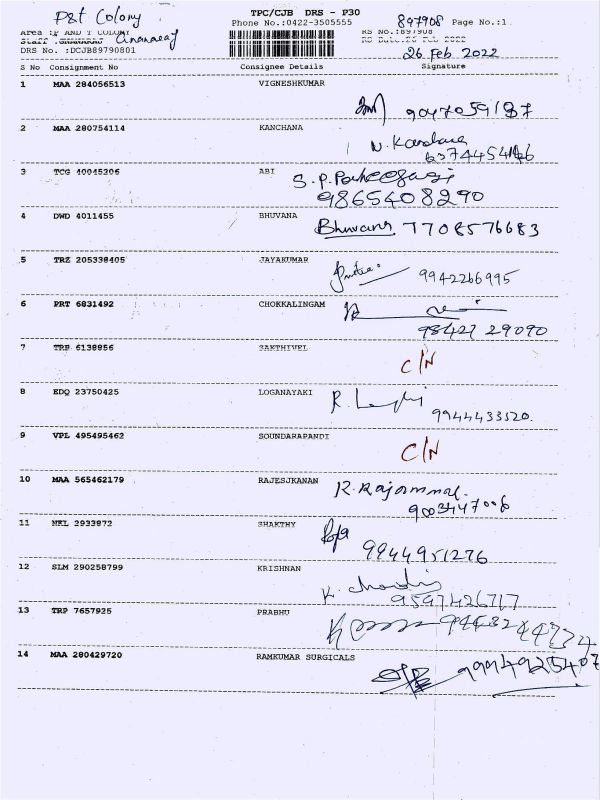 P&T Colony
TPC/CJB DRS - P30
Phone No.:0422-3505555
897908 Page No.:1
Area :P AND T COLONY
RS No.:897908
RS Date:26 Feb 2022
26 Feb 2022
DRS No. :DCJB89790801
S No Consignment No Consignee Details Signature
1 MAA 284056513 VIGNESHKUMAR
9047059187
2 MAA 280754114 KANCHANA
N. Kanchana
3 TCG 40045206 ABI
S.P.
9865408290
4 DWD 4011455 BHUVANA
Bhuvana 7708576683
5 TRZ 205338405 JAYAKUMAR
9942266995
6 PRT 6831492 CHOKKALINGAM
98427 29090
7 TRP 6138856 SAKTHIVEL
C/N
8 EDQ 23750425 LOGANAYAKI
9944433520.
9 VPL 495495462 SOUNDARAPANDI
C/N
10 MAA 565462179 RAJESJKANAN
R. Rajammal.
9003447006
11 NKL 2933872 SHAKTHY
9944951276
12 SLM 290258799 KRISHNAN
9597426717
13 TRP 7657925 PRABHU
14 MAA 280429720 RAMKUMAR SURGICALS